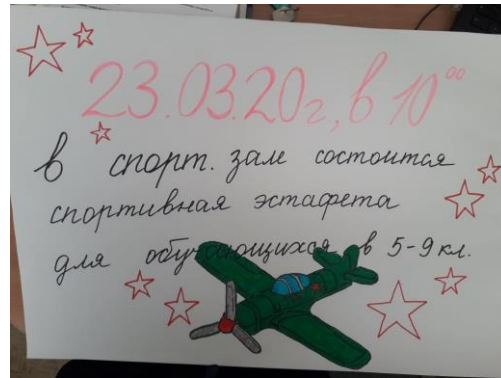 23.03.20г, в 10⁰⁰
в спорт. зале состоится
спортивная эстафета
для обучающихся в 5-9 кл.